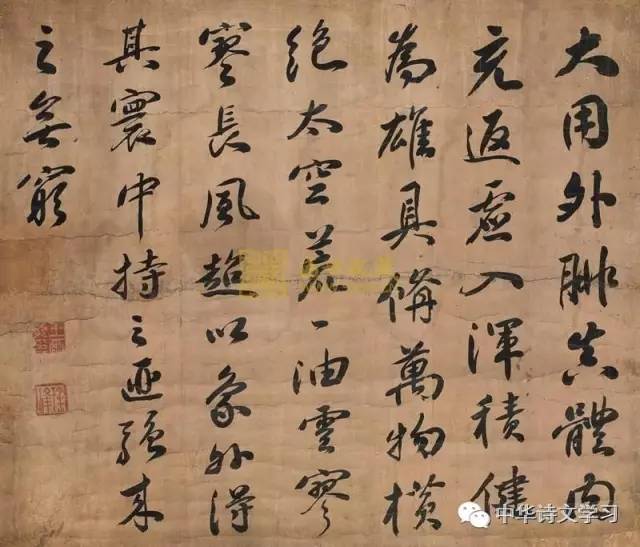 大用外腓真體内
充返虛入渾積健
為雄具備萬物橫
絶太空荒〻油雲寥
寥長風超以象外得
其寰中持之匪強來
之無窮
中华诗文学习